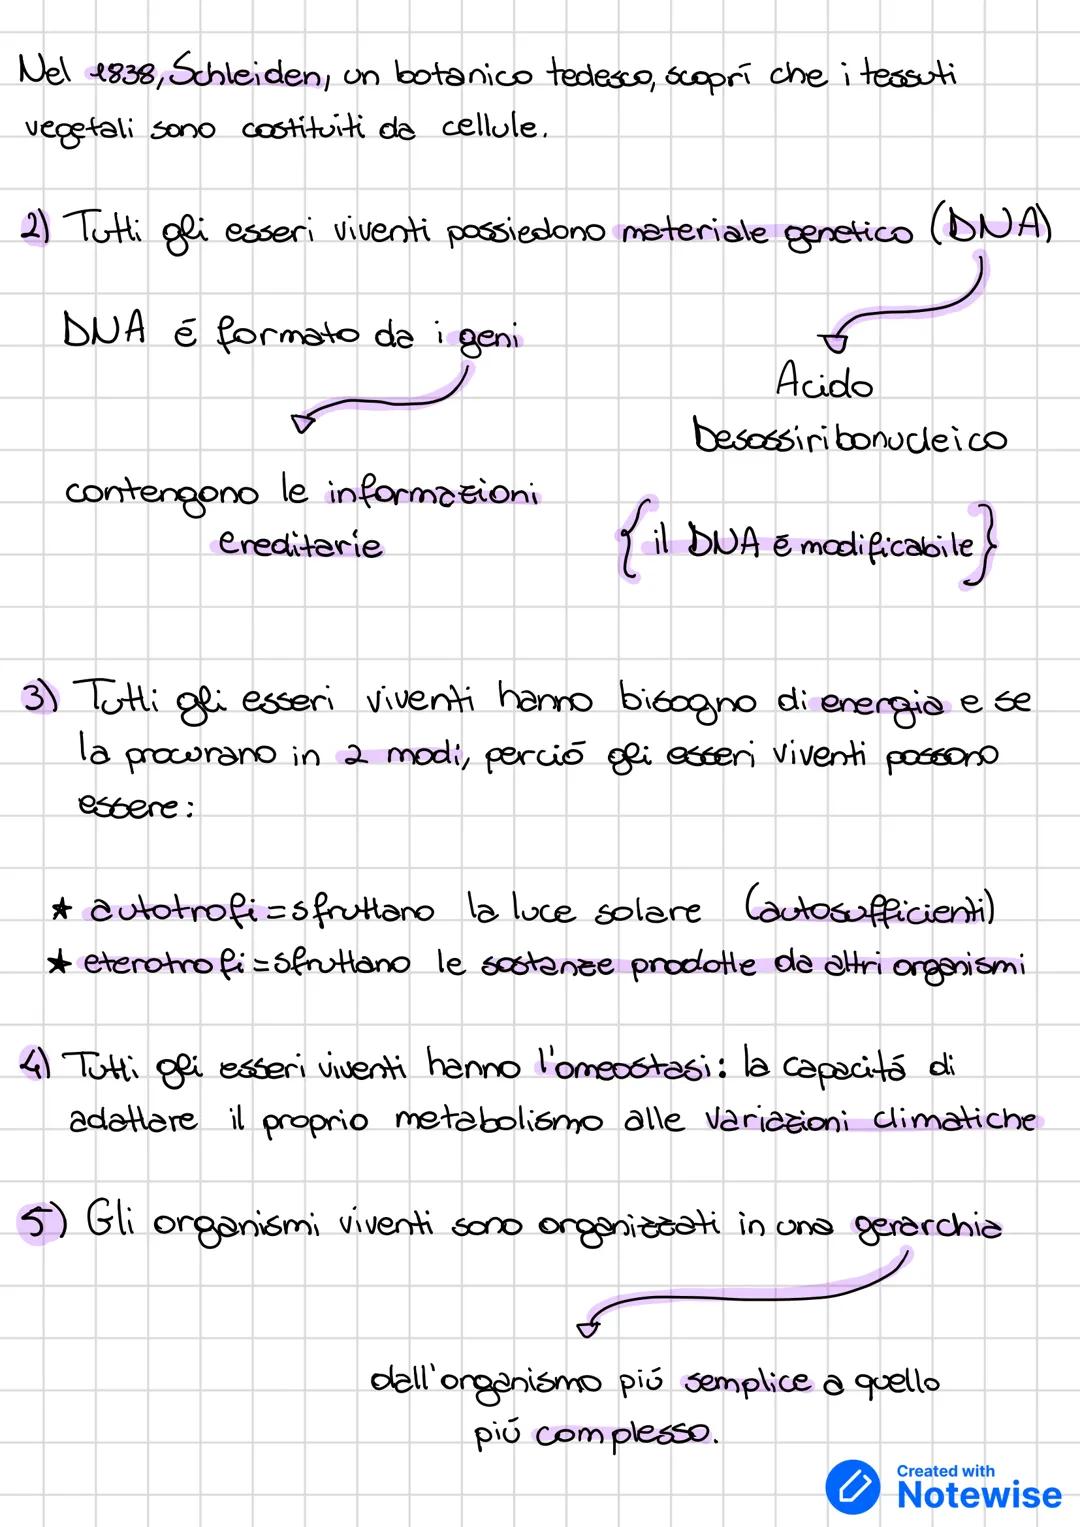 Nel 1838, Schleiden, un botanico tedesco, scoprí che i tessuti
vegetali sono costituiti da cellule.
2) Tutti gli esseri viventi possiedono materiale genetico (DNA)
DNA é formato da i geni
Acido
Desossiribonucleico
contengono le informazioni
ereditarie
{il DNA é modificabile}
3) Tutti gli esseri viventi hanno bisogno di energia e se
la procurano in 2 modi, perció gli esseri viventi possono
essere:
★ autotrofi = sfruttano la luce solare (autosufficienti)
★ eterotrofi = sfruttano le sostanze prodotte da altri organismi
4) Tutti gli esseri viventi hanno l'omeostasi: la capacitá di
adattare il proprio metabolismo alle variazioni climatiche
5) Gli organismi viventi sono organizzati in una gerarchia
dall'organismo piú semplice a quello
piú complesso.
Created with
Notewise